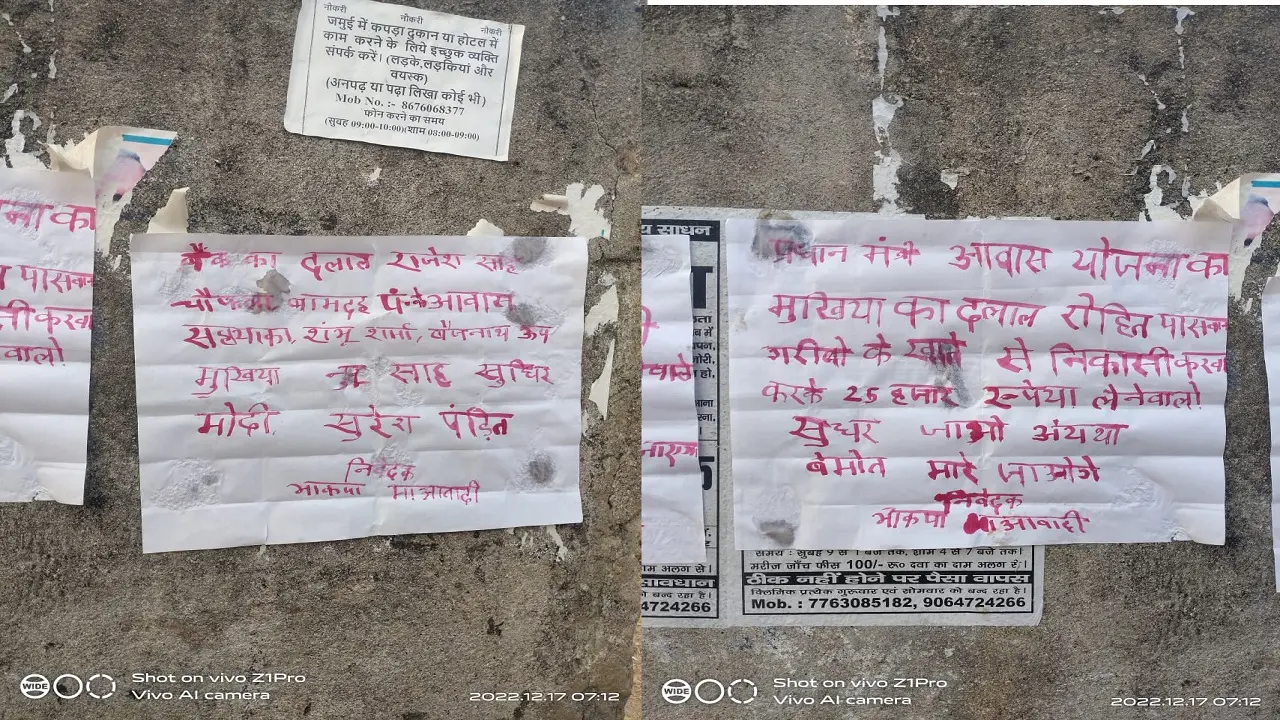 नौकरी नौकरी नौकरी
जमुई में कपड़ा दुकान या होटल में
काम करने के लिये इच्छुक व्यक्ति
संपर्क करें। (लड़के,लड़कियां और
वयस्क)
(अनपढ़ या पढ़ा लिखा कोई भी)
Mob No. :- 8676068377
फोन करने का समय
(सुबह 09:00-10:00)(शाम 08:00-09:00)
नाका
पासवान
वालो
बैंक का दलाल राजेश साह
आवास
शंभू शर्मा,
मुखिया साह सुधिर
मोदी, सुरेश पंडित
निवेदक
भाकपा माओवादी
WIDE
Shot on vivo Z1Pro
Vivo AI camera
2022.12.17 07:12
य साधन
प्रधान मंत्री आवास योजना का
मुखिया का दलाल रोहित पासवान
गरीबो के खाते से निकासी करवा
करके 25 हजार रूपेया लेनेवालो
सुधर जाओ अंयथा
बेमोत मारे जाओगे
निवेदक
भाकपा माओवादी
समय : सुबह 9 से 1 बजे तक, शाम 4 से 7 बजे तक।
मरीज जाँच फीस 100/- रू० दवा का दाम अलग रं.।
ठीक नहीं होने पर पैसा वापस
क्लिनिक प्रत्येक गुरूवार एवं सोमवार को बन्द रहा है।
Mob. : 7763085182, 9064724266
दाम अलग से।
सावधान
को बन्द रहा है।
64724266
WIDE
Shot on vivo Z1Pro
Vivo AI camera
2022.12.17 07:12